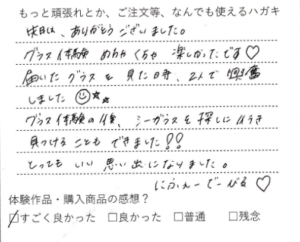 もっと頑張れとか、ご注文等、なんでも使えるハガキ
先日は、ありがとうございました。
グラス体験 めちゃくちゃ 楽しかったです♡
届いたグラスを見た時、2人で興奮
しました☺★★
グラス体験の後、シーグラスを探しに行き
見つけることもできました!!
とっても いい 思い出になりました。
♡
体験作品・購入商品の感想?
☑すごく良かった □良かった □普通 □残念